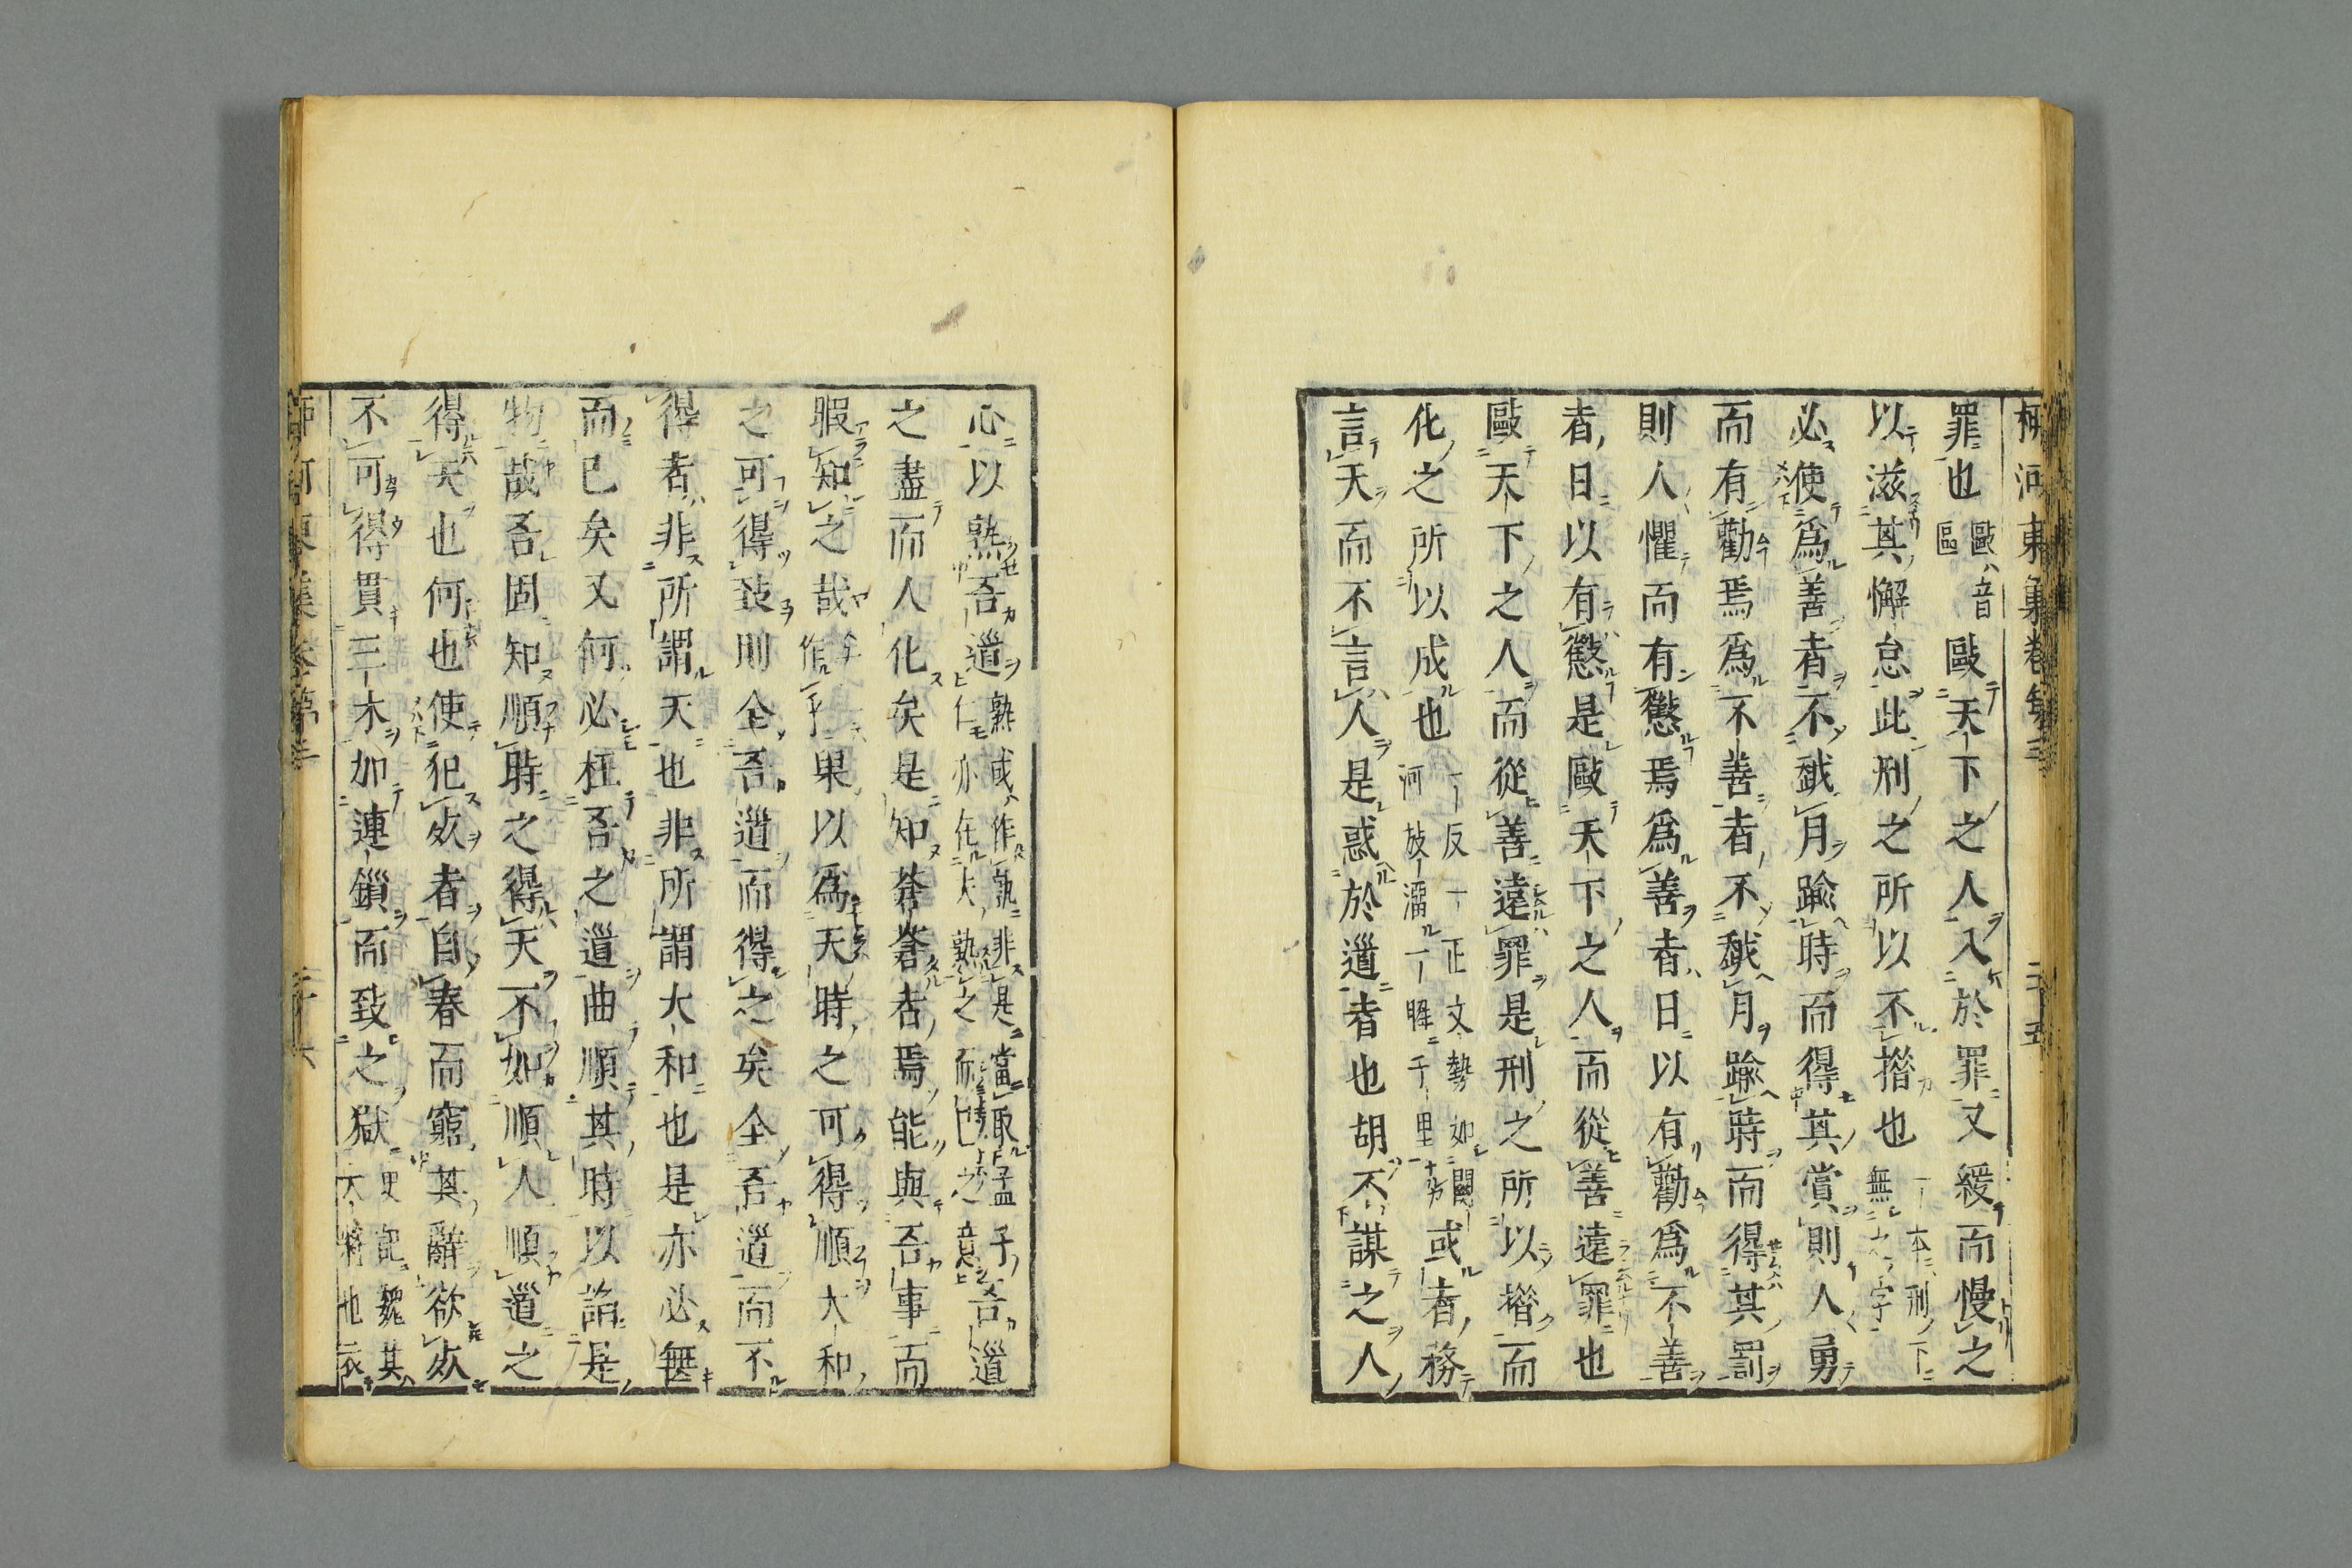 罪也歐音區歐天下之人入於罪又緩而慢之
以滋其懈怠此刑之所以不措也一本刑下無之字
必使爲善者不越月踰時而得其賞則人勇
而有勸焉爲不善者不越月踰時而得其罰
則人懼而有懲焉爲善者日以有勸爲不善
者日以有懲是歐天下之人而從善遠罪也
歐天下之人而從善遠罪是刑之所以措而
化之所以成也
或者務
言天而不言人是惑於道者也胡不謀之人
心以熟吾道熟或作孰非是當取孟子仁亦在夫熟之而已之意吾道
之盡而人化矣是知蒼蒼者焉能與吾事而
暇知之哉果以爲天時之可得順大和
之可得致則全吾道而得之矣全吾道而不
得者非所謂天也非所謂大和也是亦必無
而已矣又何必枉吾之道曲順其時以諂是
物哉吾固知順時之得天不如順人順道之
得天也何也使犯死者自春而窮其辭欲死
不可得貫三木加連鎖而致之獄史記魏其大將也衣